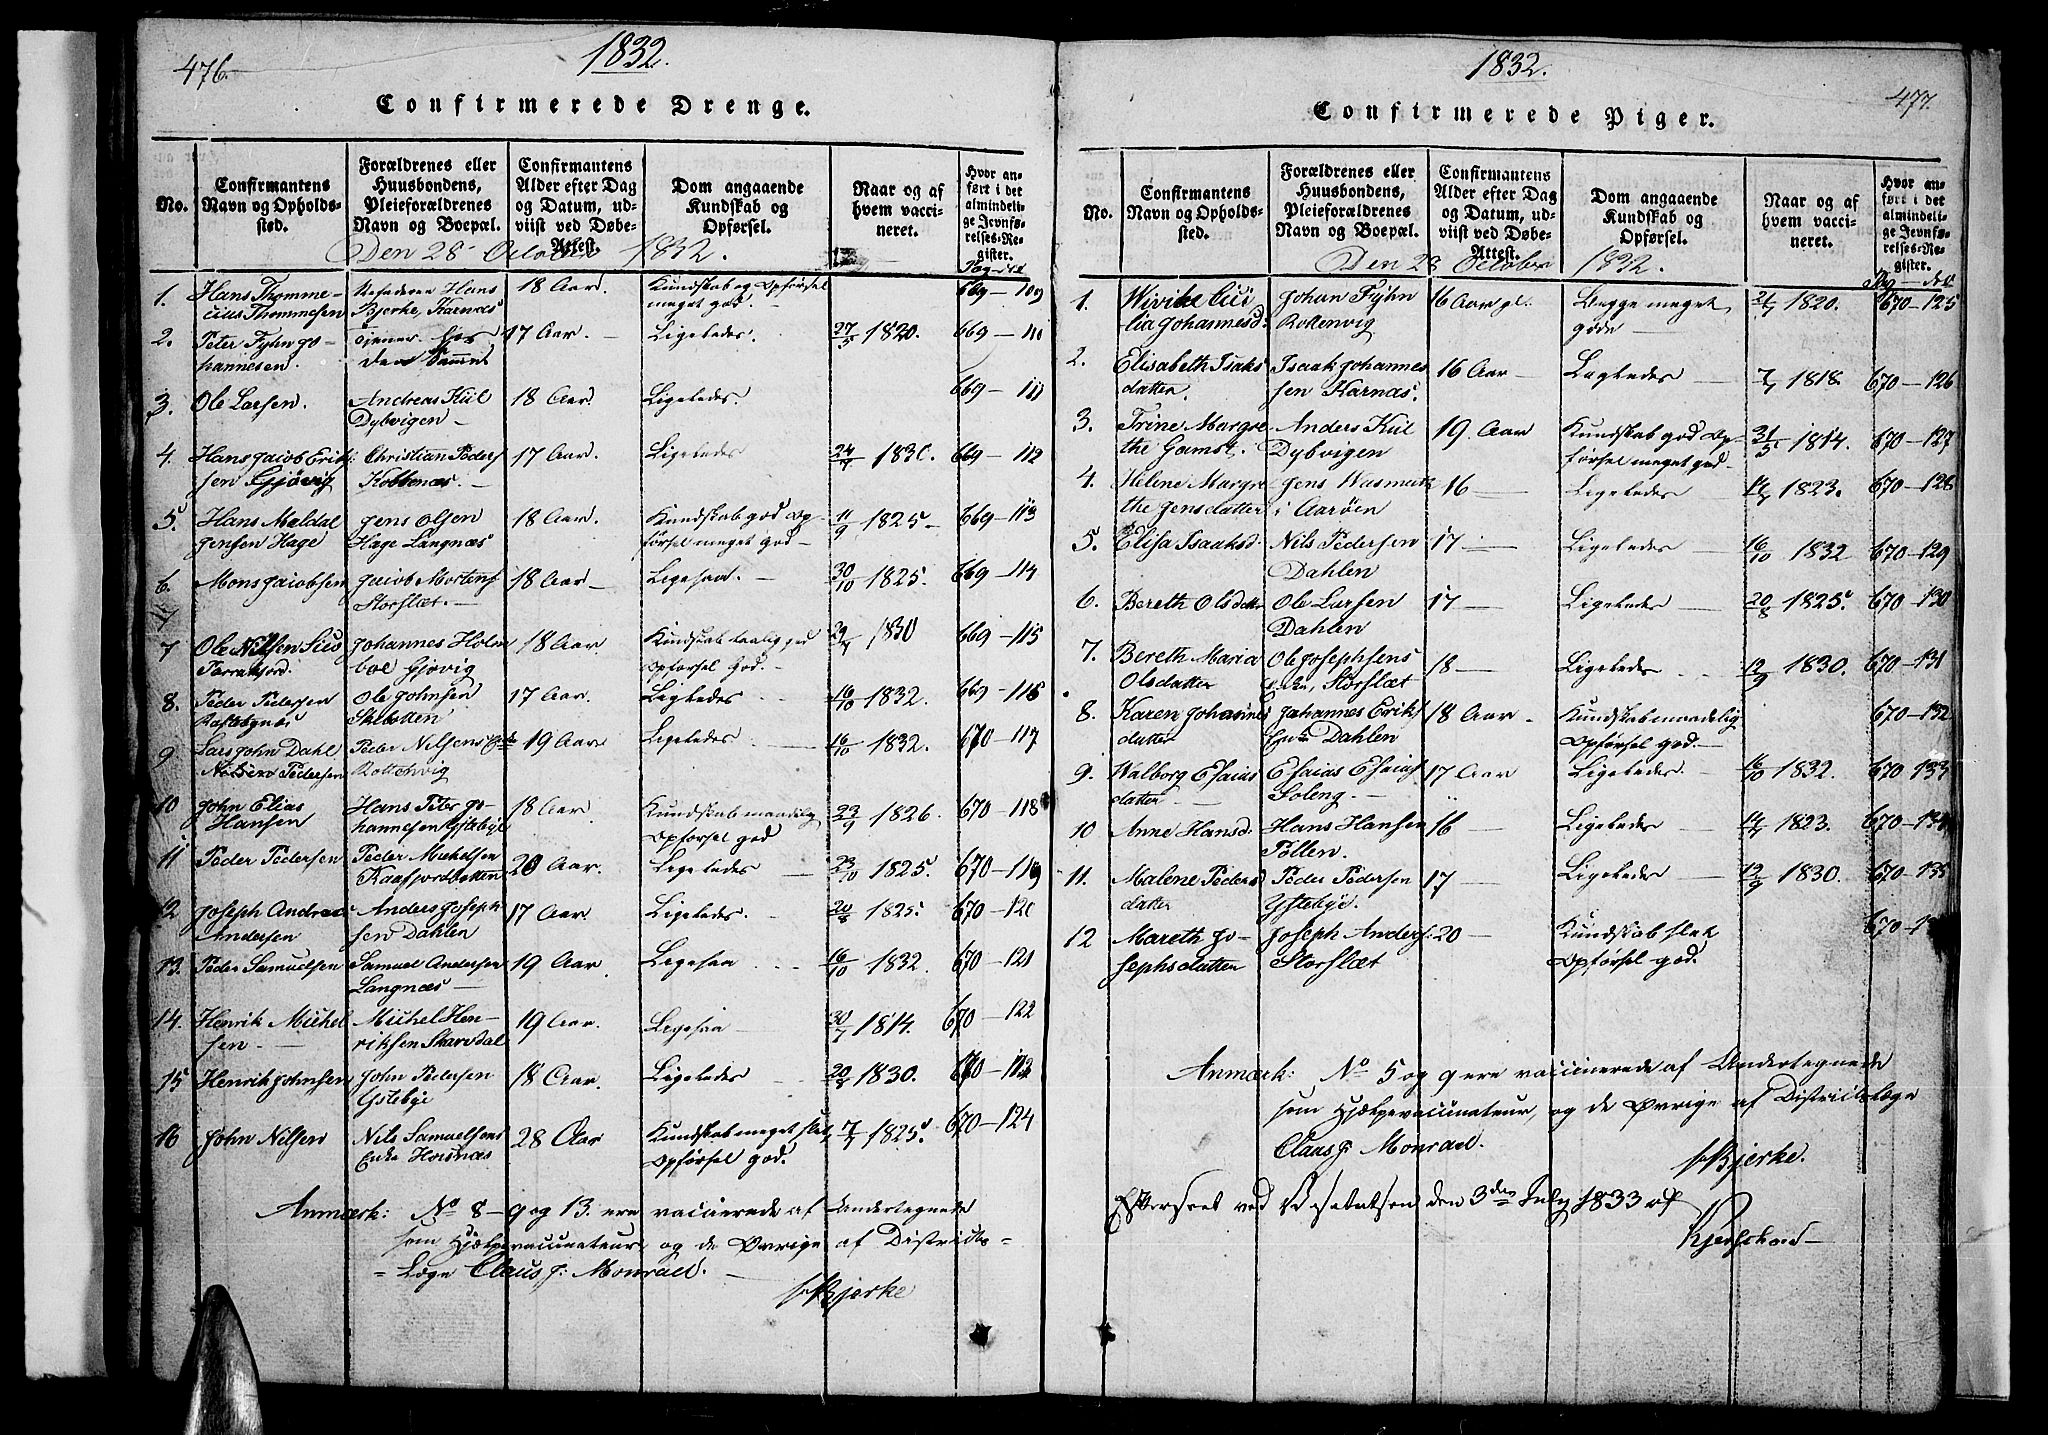 476.
1832.
Confirmerede Drenge.
No.
Confirmantens Navn og Opholdssted.
Forældrenes eller Huusbondens, Pleieforældrenes Navn og Boepæl.
Confirmantens Alder efter Dag og Datum, udviist ved Døbe-Attest.
Dom angaaende Kundskab og Opførsel.
Naar og af hvem vaccineret.
Hvor anført i det almindelige Jevnførelses-Register.
Den 28 October 1832.
1. Hans Thomme- Hans 18 Aar. Kundskab og Opførsel 669 - 109
cius Thommesen Bjerke, Karnæs meget god.
2. Peter Fyhn Jo- tjener hos 17 Aar. Ligeledes. 27/5 1820. 669 - 110
hannesen. den Samme
3. Ole Larsen. Andreas Kiil 18 Aar. Ligeledes. 669 - 111
Dybvigen
4. Hans Jacob Erik Christian Peders 17 Aar. Ligeledes 1830. 669 - 112
sen Gjøvig Kobbenæs.
5. Hans Meldal Jens Olsen 18 Aar. Kundskab god Op- 11/9 1825 - 669 - 113
Jensen Hage Hage Langnæs førsel meget god
6. Mons Jacobsen Jacob Mortens 18 Aar - Ligesaa. 30/10 1825. 669 - 114
Storslæt.
7 Ole Nilsen Johannes Holm 18 Aar Kundskab taalig god 1830 669 - 115
boe Gjøvig Opførsel God.
8. Peder Pedersen Ole Johnsen 17 Aar Ligeledes 16/10 1832. 669 - 116
9 Lars John Dahl Peder Nilsens 19 Aar Ligeledes 16/10 1832. 670 - 117
Pedersen Rottenvig
10 John Elias Hans Peter Jo- 18 Aar Kundskab maadelig 23/9 1826. 670 - 118
Hansen hannesen Ystebye Opførsel god
11 Peder Pedersen Peder Michelsen 20 Aar. Ligeledes 23/10 1825. 670 - 119
Kaafjordbotten
12 Joseph Andreas Anders Joseph 17 Aar. Ligeledes. 1825. 670 - 120
Andersen sen Dahlen
13. Peder Samuelsen Samuel Andersen 19 Aar Ligesaa 16/10 1832. 670 - 121
Langnæs
14. Henrik Michel Michel Hen- 19 Aar. Ligesaa 30/7 1814. 670 - 122
sen. riksen Skarsdal
15 Henrik Johnsen John Pedersen 18 Aar. Ligeledes 1830. 670 - 123
Ystebye
16 John Nilsen Nils Samuelsens 28 Aar Kundskab meget slet, 1825. 670 - 124
Enke Opførsel god.
Anmærk: No 8 - 9 og 13. ere vaccinerede af Undertegnede
som Hjælpevaccinateur og de Øvrige af Districts-
Læge Claus J: Monrad.
Bjerke
1832.
477.
Confirmerede Piger.
No.
Confirmantens Navn og Opholdssted.
Forældrenes eller Huusbondens, Pleieforældrenes Navn og Boepæl.
Confirmantens Alder efter Dag og Datum, udviist ved Døbe-Attest.
Dom angaaende Kundskab og Opførsel.
Naar og af hvem vaccineret.
Hvor anført i det almindelige Jevnførelses-Register.
Den 28 October 1832.
1. Johan Fyhn 16 Aar Begge meget 1820. 670 - 125
lia Johannesd. Rottenvig gode
2. Elisabeth Isaks Isaak Johannes 16 Aar Ligeledes 1818. 670 - 126
datter. sen Karnæs.
3. Trine Margre Anders Kiil 19 Aar Kundskab god Op- 1814. 670 - 127
the Gamst. Dybvigen førsel meget god
4. Helene Margre Jens Wasmuth 16 Ligeledes 1823. 670 - 128
the Jensdatter i Aarøen
5. Elisa Isaaksd. Nils Pedersen 17 Ligeledes 16/10 1832 670 - 129
Dahlen
6. Bereth Olsdatter Ole Larsen 17 Ligeledes 1825. 670 - 130
Dahlen
7. Bereth Maria Ole Josephsens 18 Ligeledes 1830. 670 - 131
Olsdatter Enke, Storslæt
8. Karen Johannes Johannes Erik 18 Aar - Kundskab maadelig 670 - 132
datter Enke Dahlen Opførsel god.
9. Walborg Esaias Esaias Esaias 17 Aar Ligeledes 16/10 1832. 670 - 133
datter Soleng.
10 Anne Hansd: Hans Hansen 16 Ligeledes 1823. 670 - 134
Pollen.
11. Malene Peders Peder Pedersen 17 Ligeledes 1830. 670 - 135
datter Ystebye.
12 Mareth Jo- Joseph Anders: 20 Kundskab slet 670
sephsdatter Storslæt Opførsel god.
Anmærk: No 5 og 9 ere vaccinerede af Undertegnede
som Hjælpevaccinateur, og de Øvrige af Districtslæge
Claus J: Monrad.
Bjerke.
Efterseet ved Visitatsen den 3die July 1833 af